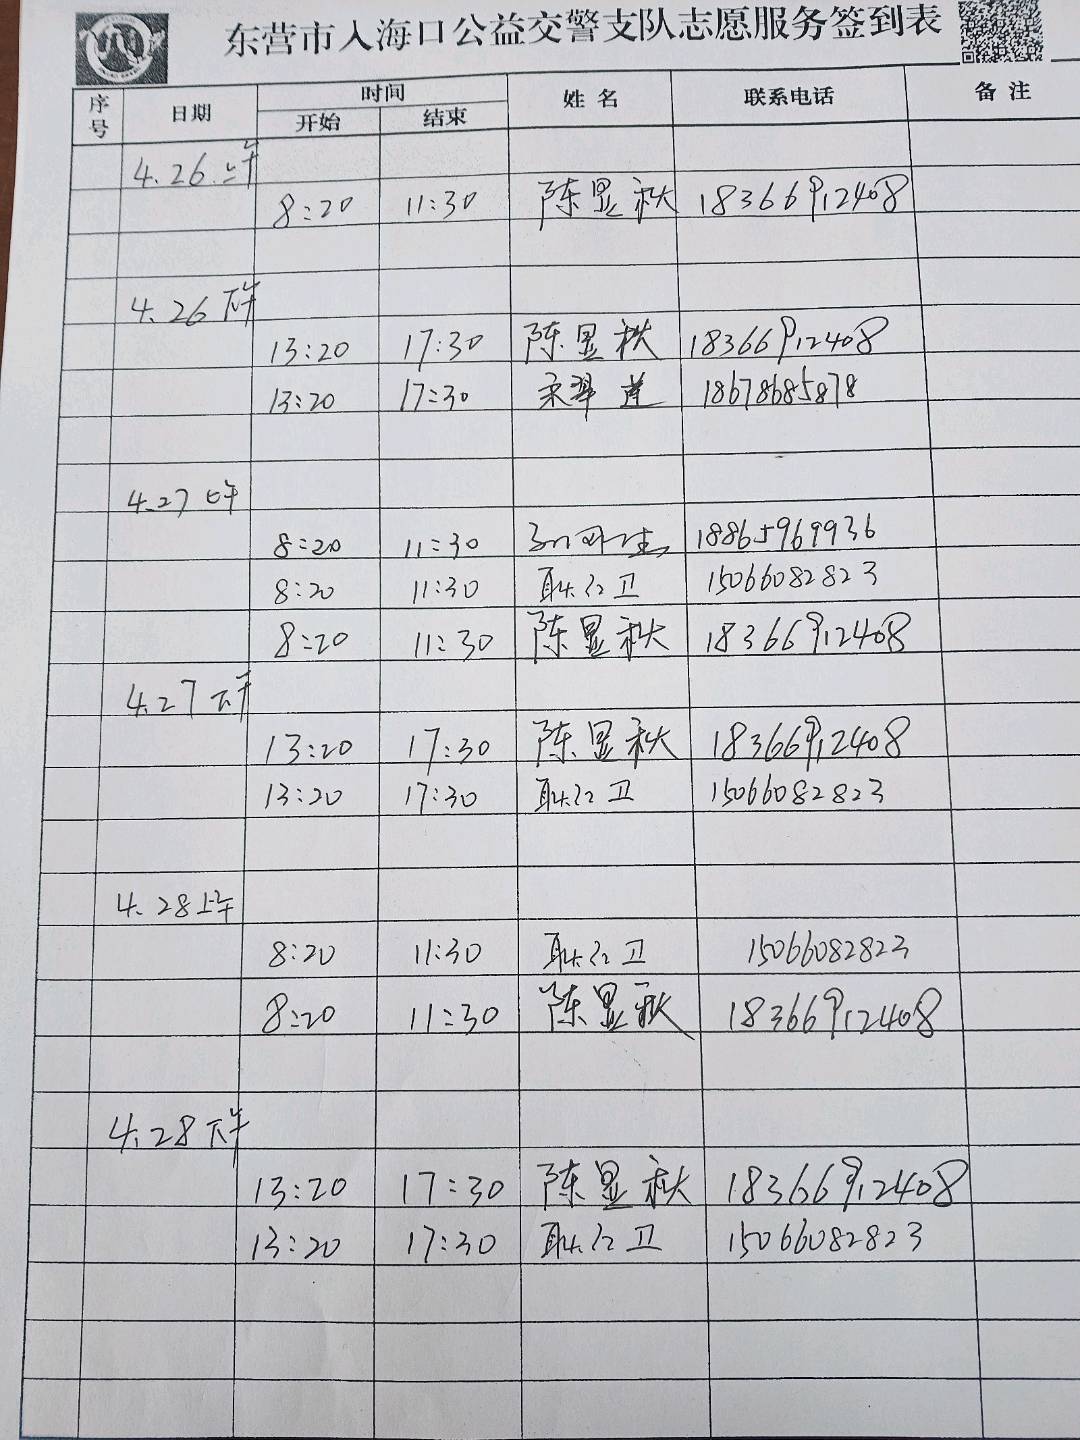 东营市入海口公益交警支队志愿服务签到表
序号 日期 时间 姓名 联系电话 备注
开始 结束
4.26上午
8:20 11:30 陈显秋 18366912408
4.26下午
13:20 17:30 陈显秋 18366912408
13:20 17:30 宋翠莲 18678685878
4.27上午
8:20 11:30 18865969936
8:20 11:30 耿红卫 15066082823
8:20 11:30 陈显秋 18366912408
4.27下午
13:20 17:30 陈显秋 18366912408
13:20 17:30 耿红卫 15066082823
4.28上午
8:20 11:30 耿红卫 15066082823
8:20 11:30 陈显秋 18366912408
4.28下午
13:20 17:30 陈显秋 18366912408
13:20 17:30 耿红卫 15066082823